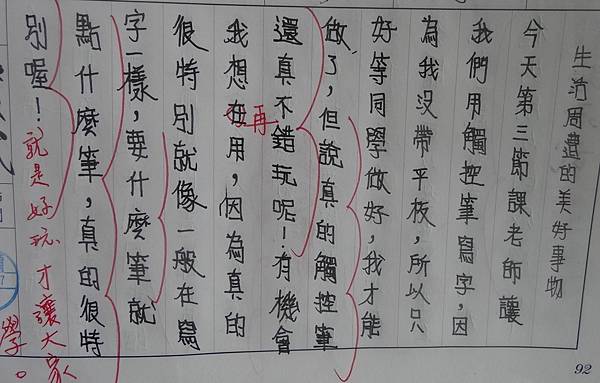 生活周遭的美好事物
今天第三節課老師讓
我們用觸控筆寫字,因
為我沒帶平板,所以只
好等同學做好,我才能
做了,但說真的觸控筆
還真不錯玩呢!有機會
我想在再用,因為真的
很特別就像一般在寫
字一樣,要什麼筆就
點什麼筆,真的很特
別喔!就是好玩才讓大家
學。
92